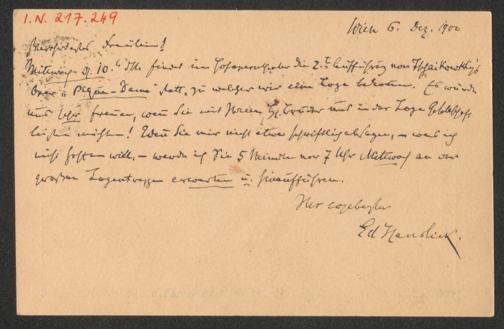 I.N. 217.249
Wien 6. Dez. 1900
Verehrtestes Fräulein!
Mittwoch d. 10. findet im Hofoperntheater die 2. Aufführung von Tschaikowsky's
Oper "Pique Dame" statt, zu welcher wir eine Loge bekommen. Es würde
uns sehr freuen, wenn Sie mit Ihrem Bruder uns in der Loge Gesellschaft
leisten möchten! Wenn Sie mir nicht etwa schriftlich absagen, – was ich
nicht hoffen will, – werde ich Sie 5 Minuten vor 7 Uhr Mittwoch an der
großen Logentreppe erwarten u. hinaufführen.
Ihr ergebenster
Ed Hanslick.